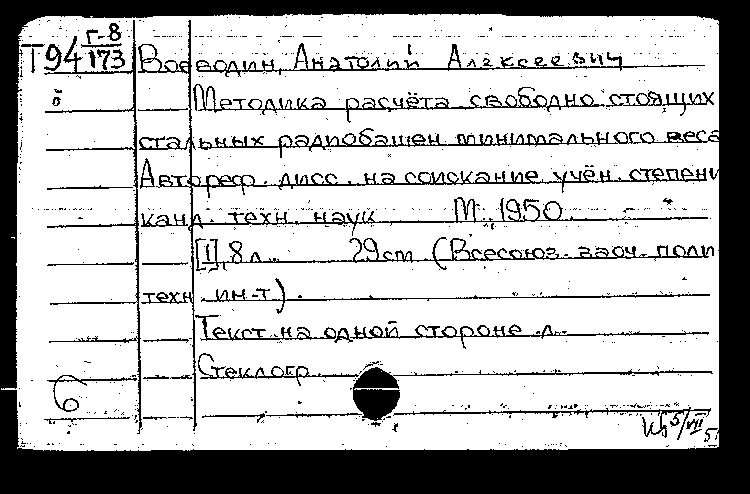 Т94 Г-8/173 Воеводин, Анатолий Алексеевич
Методика расчёта свободно стоящих
стальных радиобашен минимального веса
Автореф. дисс. на соискание учён. степени
канд. техн. наук М., 1950.
[1], 8 л. 29 cm (Всесоюз. заоч. поли
техн. ин-т).
Текст на одной стороне л.
Стеклогр.
6
5/VII 51